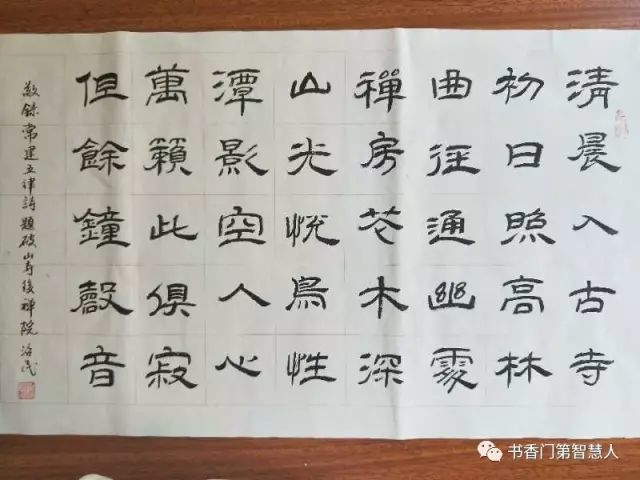 清晨入古寺
初日照高林
曲徑通幽處
禪房花木深
山光悦鳥性
潭影空人心
萬籟此俱寂
但餘鐘磬音
敬録常建五律詩題破山寺後禅院
书香门第智慧人